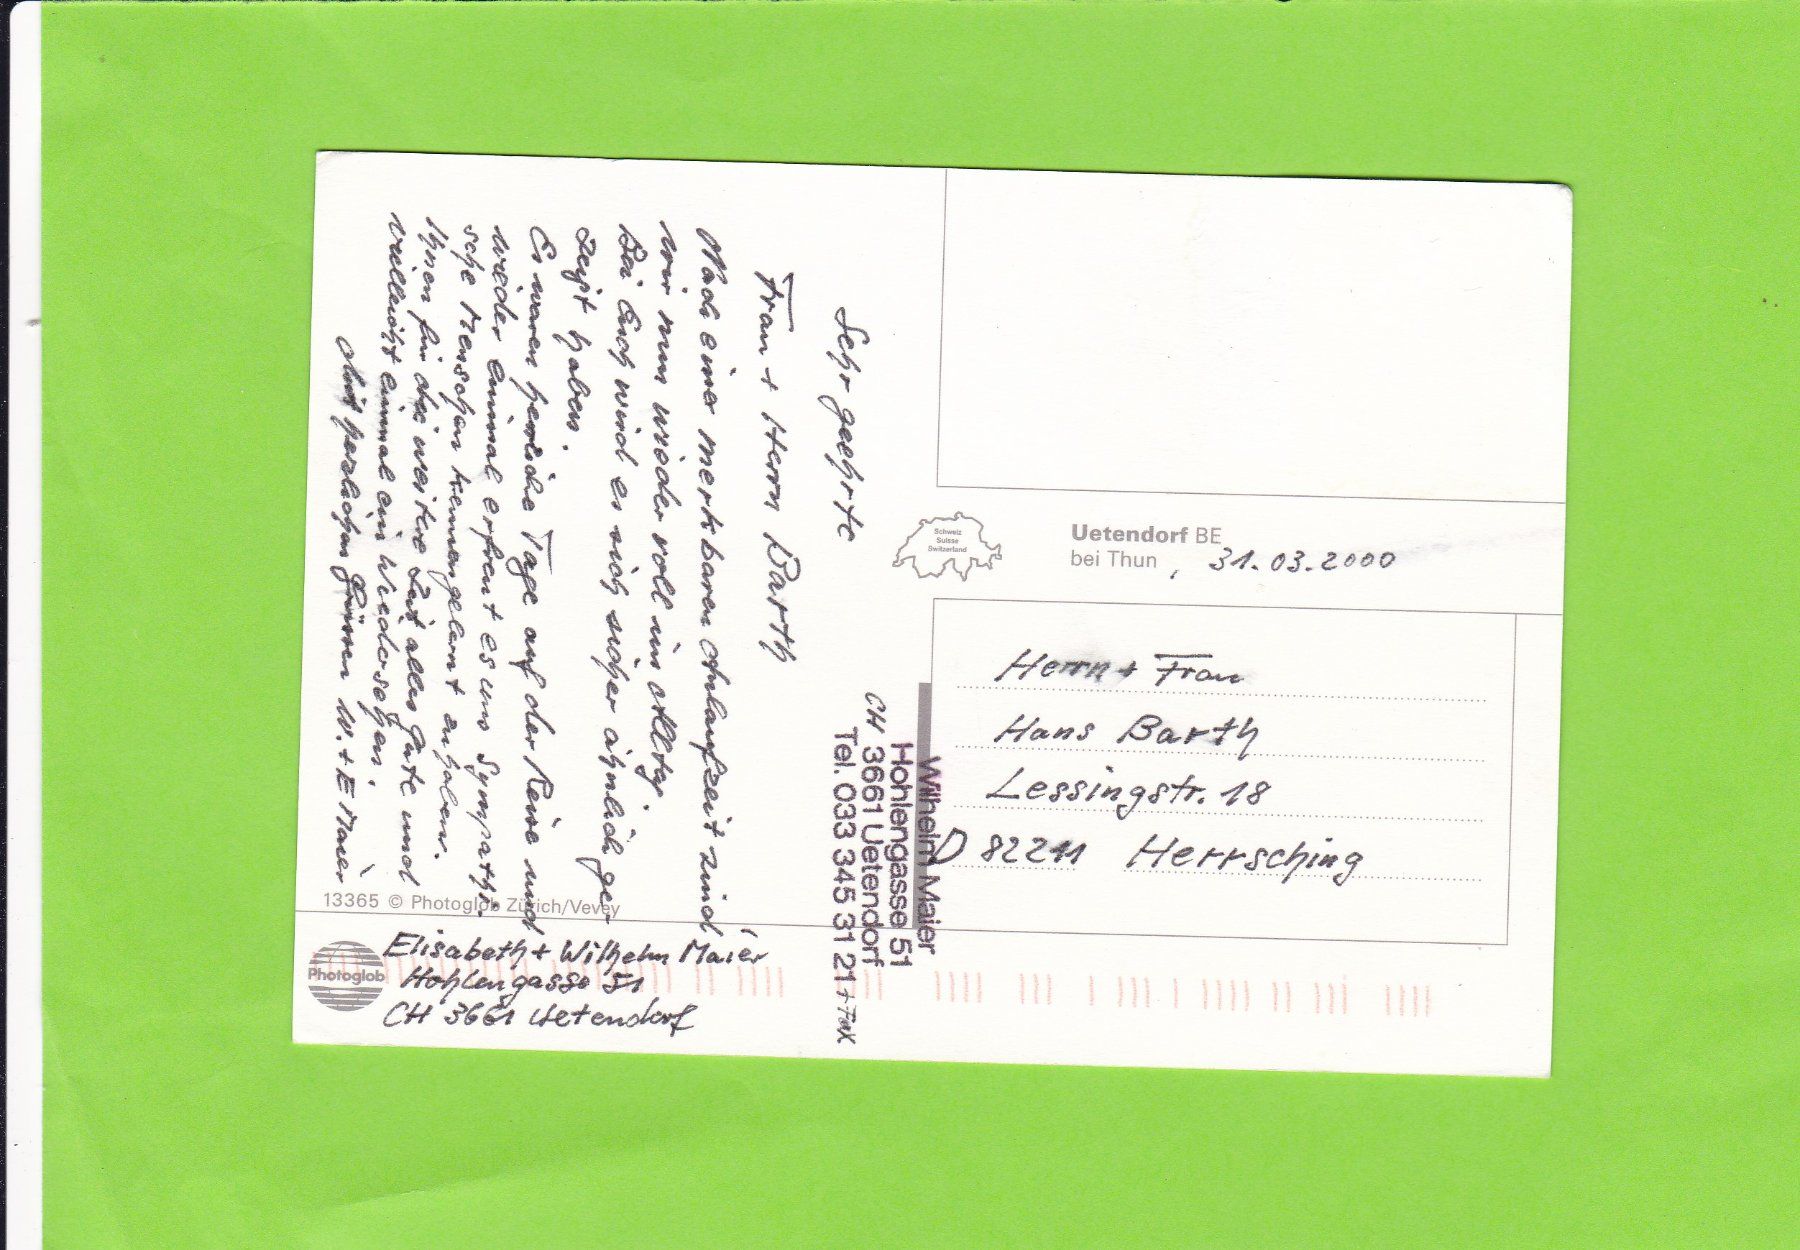 Sehr geehrte
Frau + Herrn Barth
Nach einer merkbaren Anlaufzeit sind
wir nun wieder voll im Alltg.
Bei Euch wird es sich sicher ähnlich ge-
zeigt haben.
Es waren herliche Tage auf der Reise und
wieder einmal erfreut es uns sympathi-
sche Menschen kennengelernt zu haben.
Ihnen für die weitere Zeit alles Gute und
vielleicht einmal ein Wiedersehen.
Mit herzlichen Grüssen W. + E Maier
13365 © Photoglob Zürich/Vevey
Photoglob
Elisabeth + Wilhelm Maier
Hohlengasse 51
CH 3661 Uetendorf
Wilhelm Maier
Hohlengasse 51
CH 3661 Uetendorf
Tel. 033 345 31 21 + Fax
Schweiz
Suisse
Switzerland
Uetendorf BE
bei Thun , 31.03.2000
Herrn + Frau
Hans Barth
Lessingstr. 18
D 82211 Herrsching